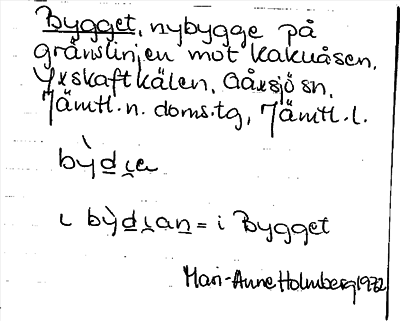 Bygget, nybygge på
gränslinjen mot Kakuåsen,
Yxskaftkälen, Gåxsjö sn,
Jämtl. n. doms.tg, Jämtl. l.
bỳd̲
ɩ bỳd̲ = i Bygget
Mari-Anne Holmberg 1972